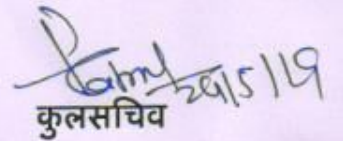 29/5/19
कुलसचिव